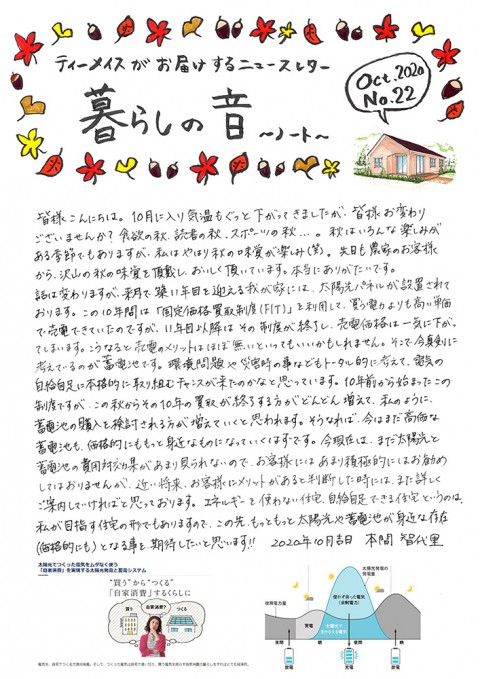 ティーメイスがお届けするニュースレター
Oct.2020
No.22
暮らしの音 〜ノート〜
皆様こんにちは。10月に入り気温もぐっと下がってきましたが、皆様お変わり
ございませんか？食欲の秋、読書の秋、スポーツの秋…。秋はいろんな楽しみが
ある季節でもありますが、私はやはり秋の味覚が楽しみ(笑)。先日も農家のお客様
から、沢山の秋の味覚を頂戴し、おいしく頂いています。本当にありがたいです。
話は変わりますが、来月で築11年目を迎える我が家には、太陽光パネルが設置されて
おります。この10年間は「固定価格買取制度(FIT)」を利用して、買う電力よりも高い単価
で売電できていたのですが、11年目以降はその制度が終了し、売電価格は一気に下がっ
てしまいます。こうなると売電のメリットはほぼ無いといってもいいかもしれません。そこで今真剣に
考えているのが蓄電池です。環境問題や災害時の事などもトータル的に考えて、電気の
自給自足に本格的に取り組むチャンスが来たのかなと思っています。10年前から始まったこの
制度ですが、この秋からその10年の買取が終了する方がどんどん増えて、私のように、
蓄電池の購入を検討される方が増えていくと思われます。そうなれば、今はまだ高価な
蓄電池も、価格的にももっと身近なものになっていくはずです。今現在は、まだ太陽光と
蓄電池の費用対効果があまり見られないので、お客様にはあまり積極的にはお勧め
してはおりませんが、近い将来、お客様にメリットがあると判断した時には、また詳しく
ご案内していければと思っております。エネルギーを使わない住宅、自給自足できる住宅というのは、
私が目指す住宅の形でもありますので、この先、もっともっと太陽光や蓄電池が身近な存在
(価格的にも)となる事を、期待したいと思います!! 2020年10月吉日 本間 智代里
太陽光でつくった電気をムダなく使う
「自家消費」を実現する太陽光発電と蓄電システム
"買う"から"つくる"
「自家消費」するくらしに
買う
自家消費？
つくる
太陽光発電の
発電量
使わず余った電気
(余剰電力)
使用電力量
買電
太陽光で
まかなえる電気
夜間
朝
昼間
夜間
放電
充電
放電